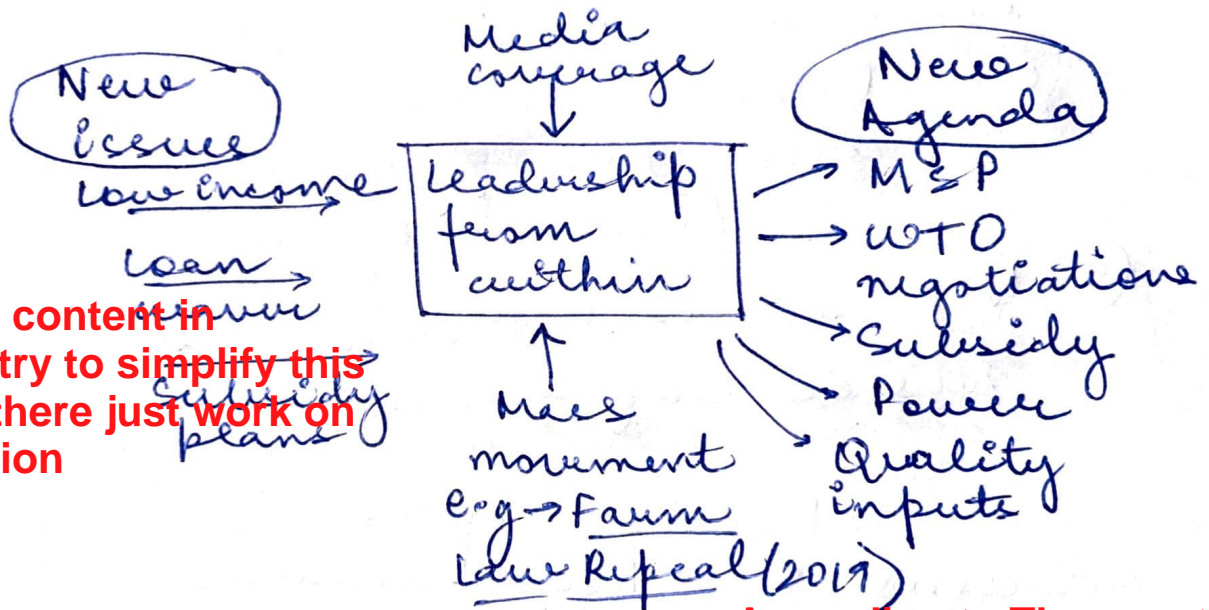 New
issues
Low income
Loan
waver
Subsidy
plans
content in
try to simplify this
there just work on
ion
Media
coverage
Leadership
from
within
Mass
movement
e.g → Farm
Law Repeal (2019)
New
Agenda
MSP
WTO
negotiations
Subsidy
Power
Quality
inputs